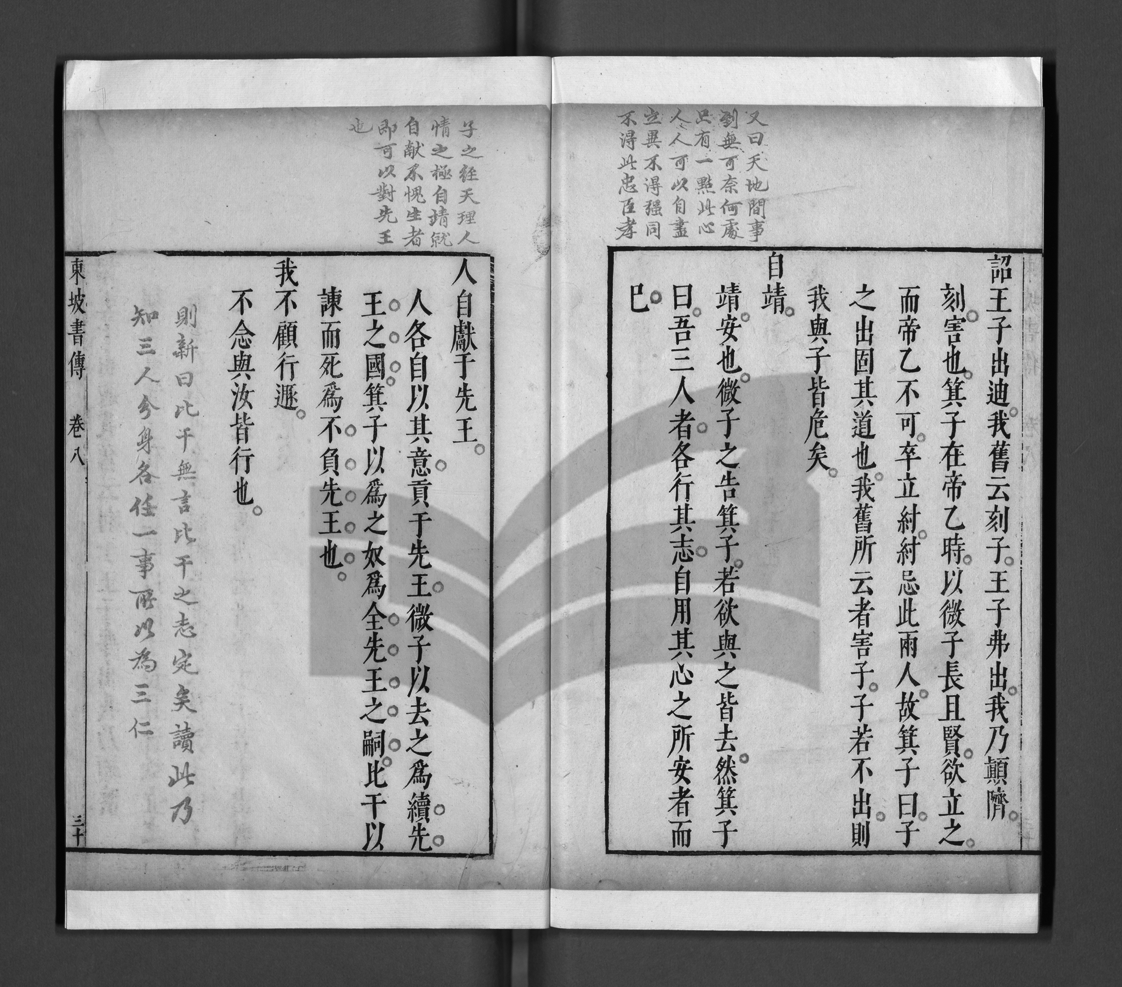 又曰天地間事
到無可奈何處
只有一點此心
人人可以自盡
立異不得强同
不得此忠臣孝
詔王子出迪我舊云刻子王子弗出我乃顛隮
刻害也箕子在帝乙時以微子長且賢欲立之
而帝乙不可卒立紂紂忌此兩人故箕子曰子
之出固其道也我舊所云者害子子若不出則
我與子皆危矣
自靖
靖安也微子之告箕子若欲與之皆去然箕子
曰吾三人者各行其志自用其心之所安者而
已
子之經天理人
情之極自靖就
自献不愧生者
即可以對先王
也
人自獻于先王
人各自以其意貢于先王微子以去之爲續先
王之國箕子以爲之奴爲全先王之嗣比干以
諫而死爲不負先王也
我不顧行遯
不念與汝皆行也
則新曰比干無言比干之志定矣讀此乃
知三人分身各任一事所以為三仁
東坡書傳 卷八 三十